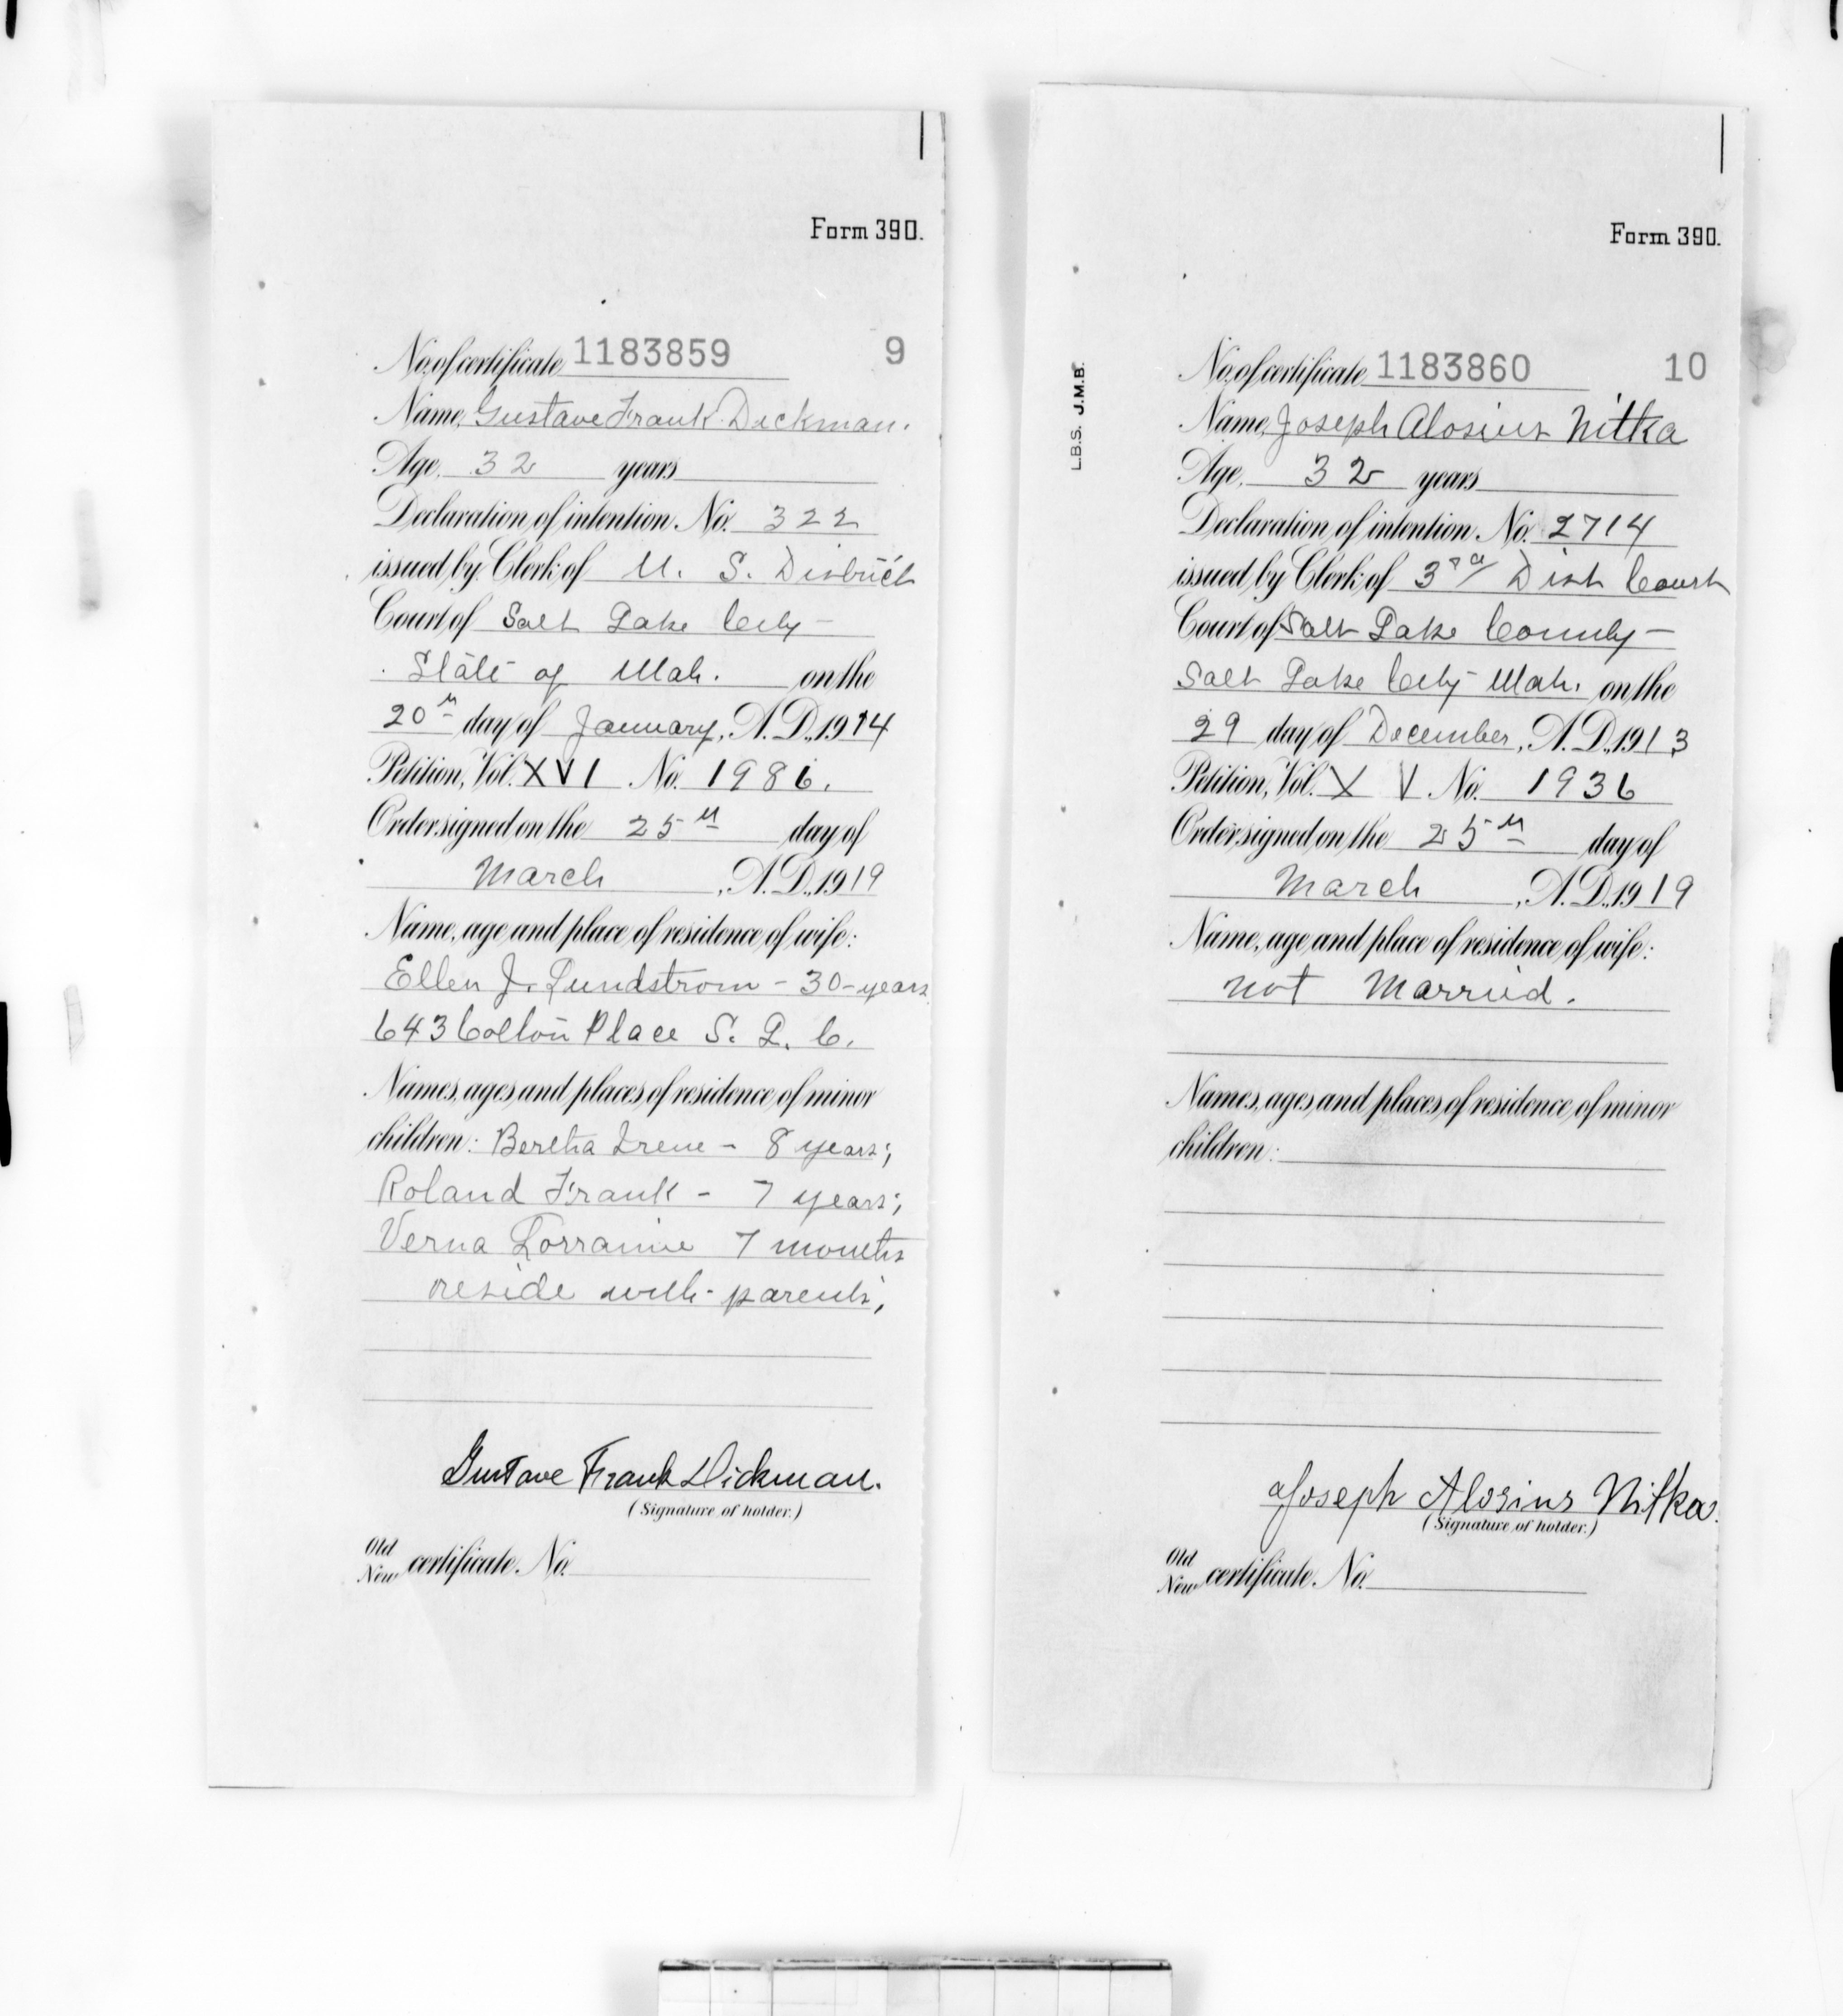 Form 390.
No. of certificate 1183859 9
Name, Gustave Frank Dickman.
Age, 32 years
Declaration of intention No. 322
issued by Clerk of U. S. District
Court of Salt Lake City -
State of Utah. on the
20th day of January, A.D., 1914
Petition, Vol. XVI No. 1986.
Order signed on the 25th day of
March, A.D., 1919
Name, age and place of residence of wife:
Ellen J. Lundstrom - 30 - years
643 Colton Place S. L. C.
Names, ages and places of residence of minor
children: Bertha Irene - 8 years;
Roland Frank - 7 years;
Verna Lorraine 7 months
reside with parents;
Gustave Frank Dickman.
(Signature of holder.)
Old
New certificate. No.
L.B.S. J.M.B.
Form 390.
No. of certificate 1183860 10
Name, Joseph Alosius Nitka
Age, 32 years
Declaration of intention No. 2714
issued by Clerk of 3rd Dist Court
Court of Salt Lake County -
Salt Lake City Utah. on the
29 day of December, A.D., 1913
Petition, Vol. X V No. 1936
Order signed on the 25th day of
March, A.D., 1919
Name, age and place of residence of wife:
not Married.
Names, ages and places of residence of minor
children:
Joseph Alosius Nitka.
(Signature of holder.)
Old
New certificate. No.